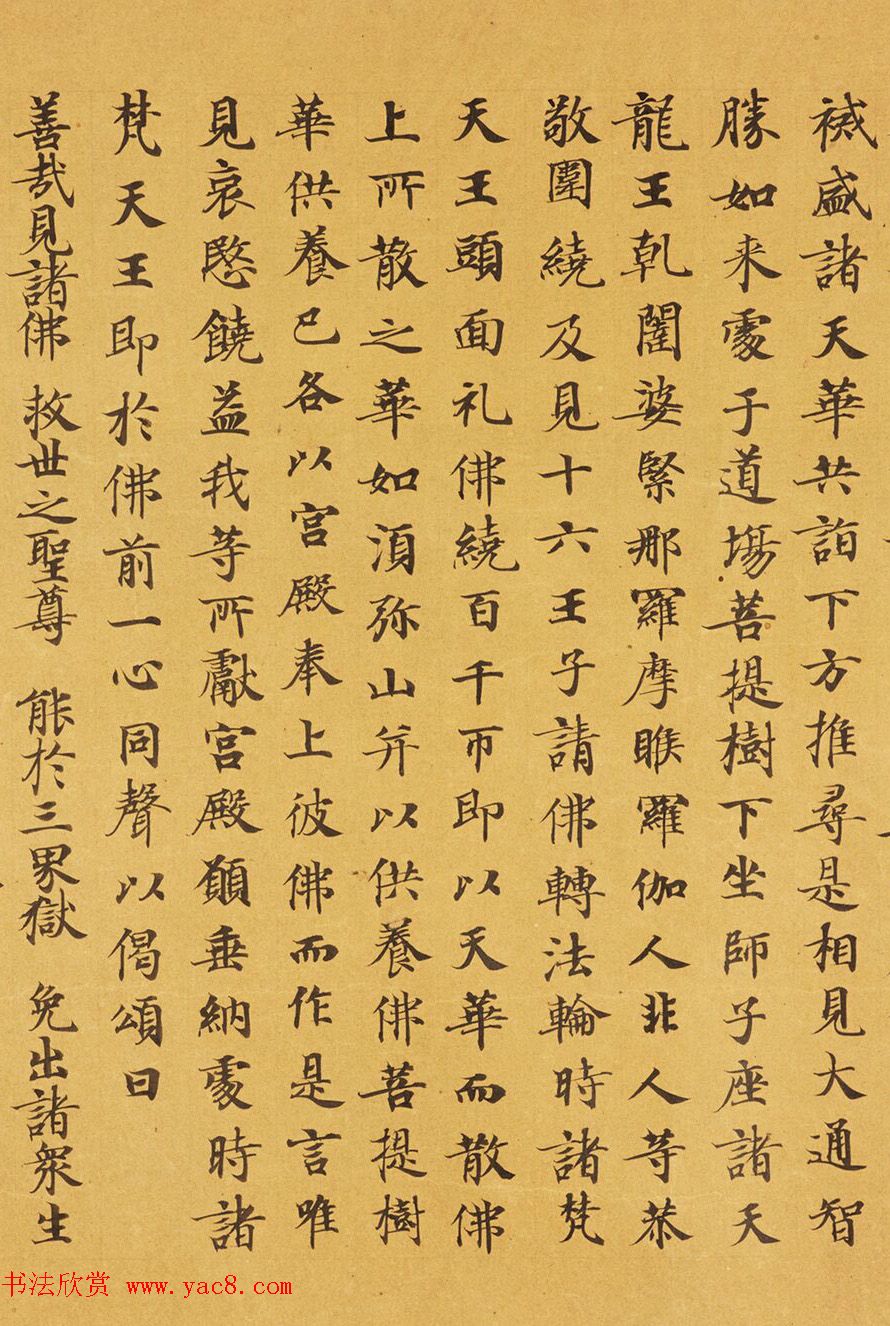 祴盛諸天華共詣下方推尋是相見大通智
勝如来處于道場菩提樹下坐師子座諸天
龍王乹闥婆緊那羅摩睺羅伽人非人等恭
敬圍繞及見十六王子請佛轉法輪時諸梵
天王頭面礼佛繞百千帀即以天華而散佛
上所散之華如湏弥山并以供養佛菩提樹
華供養已各以宮殿奉上彼佛而作是言唯
見哀愍饒益我等所獻宮殿願垂納處時諸
梵天王即於佛前一心同聲以偈頌曰
善哉見諸佛 救世之聖尊 能於三界獄 免出諸衆生
书法欣赏 www.yac8.com